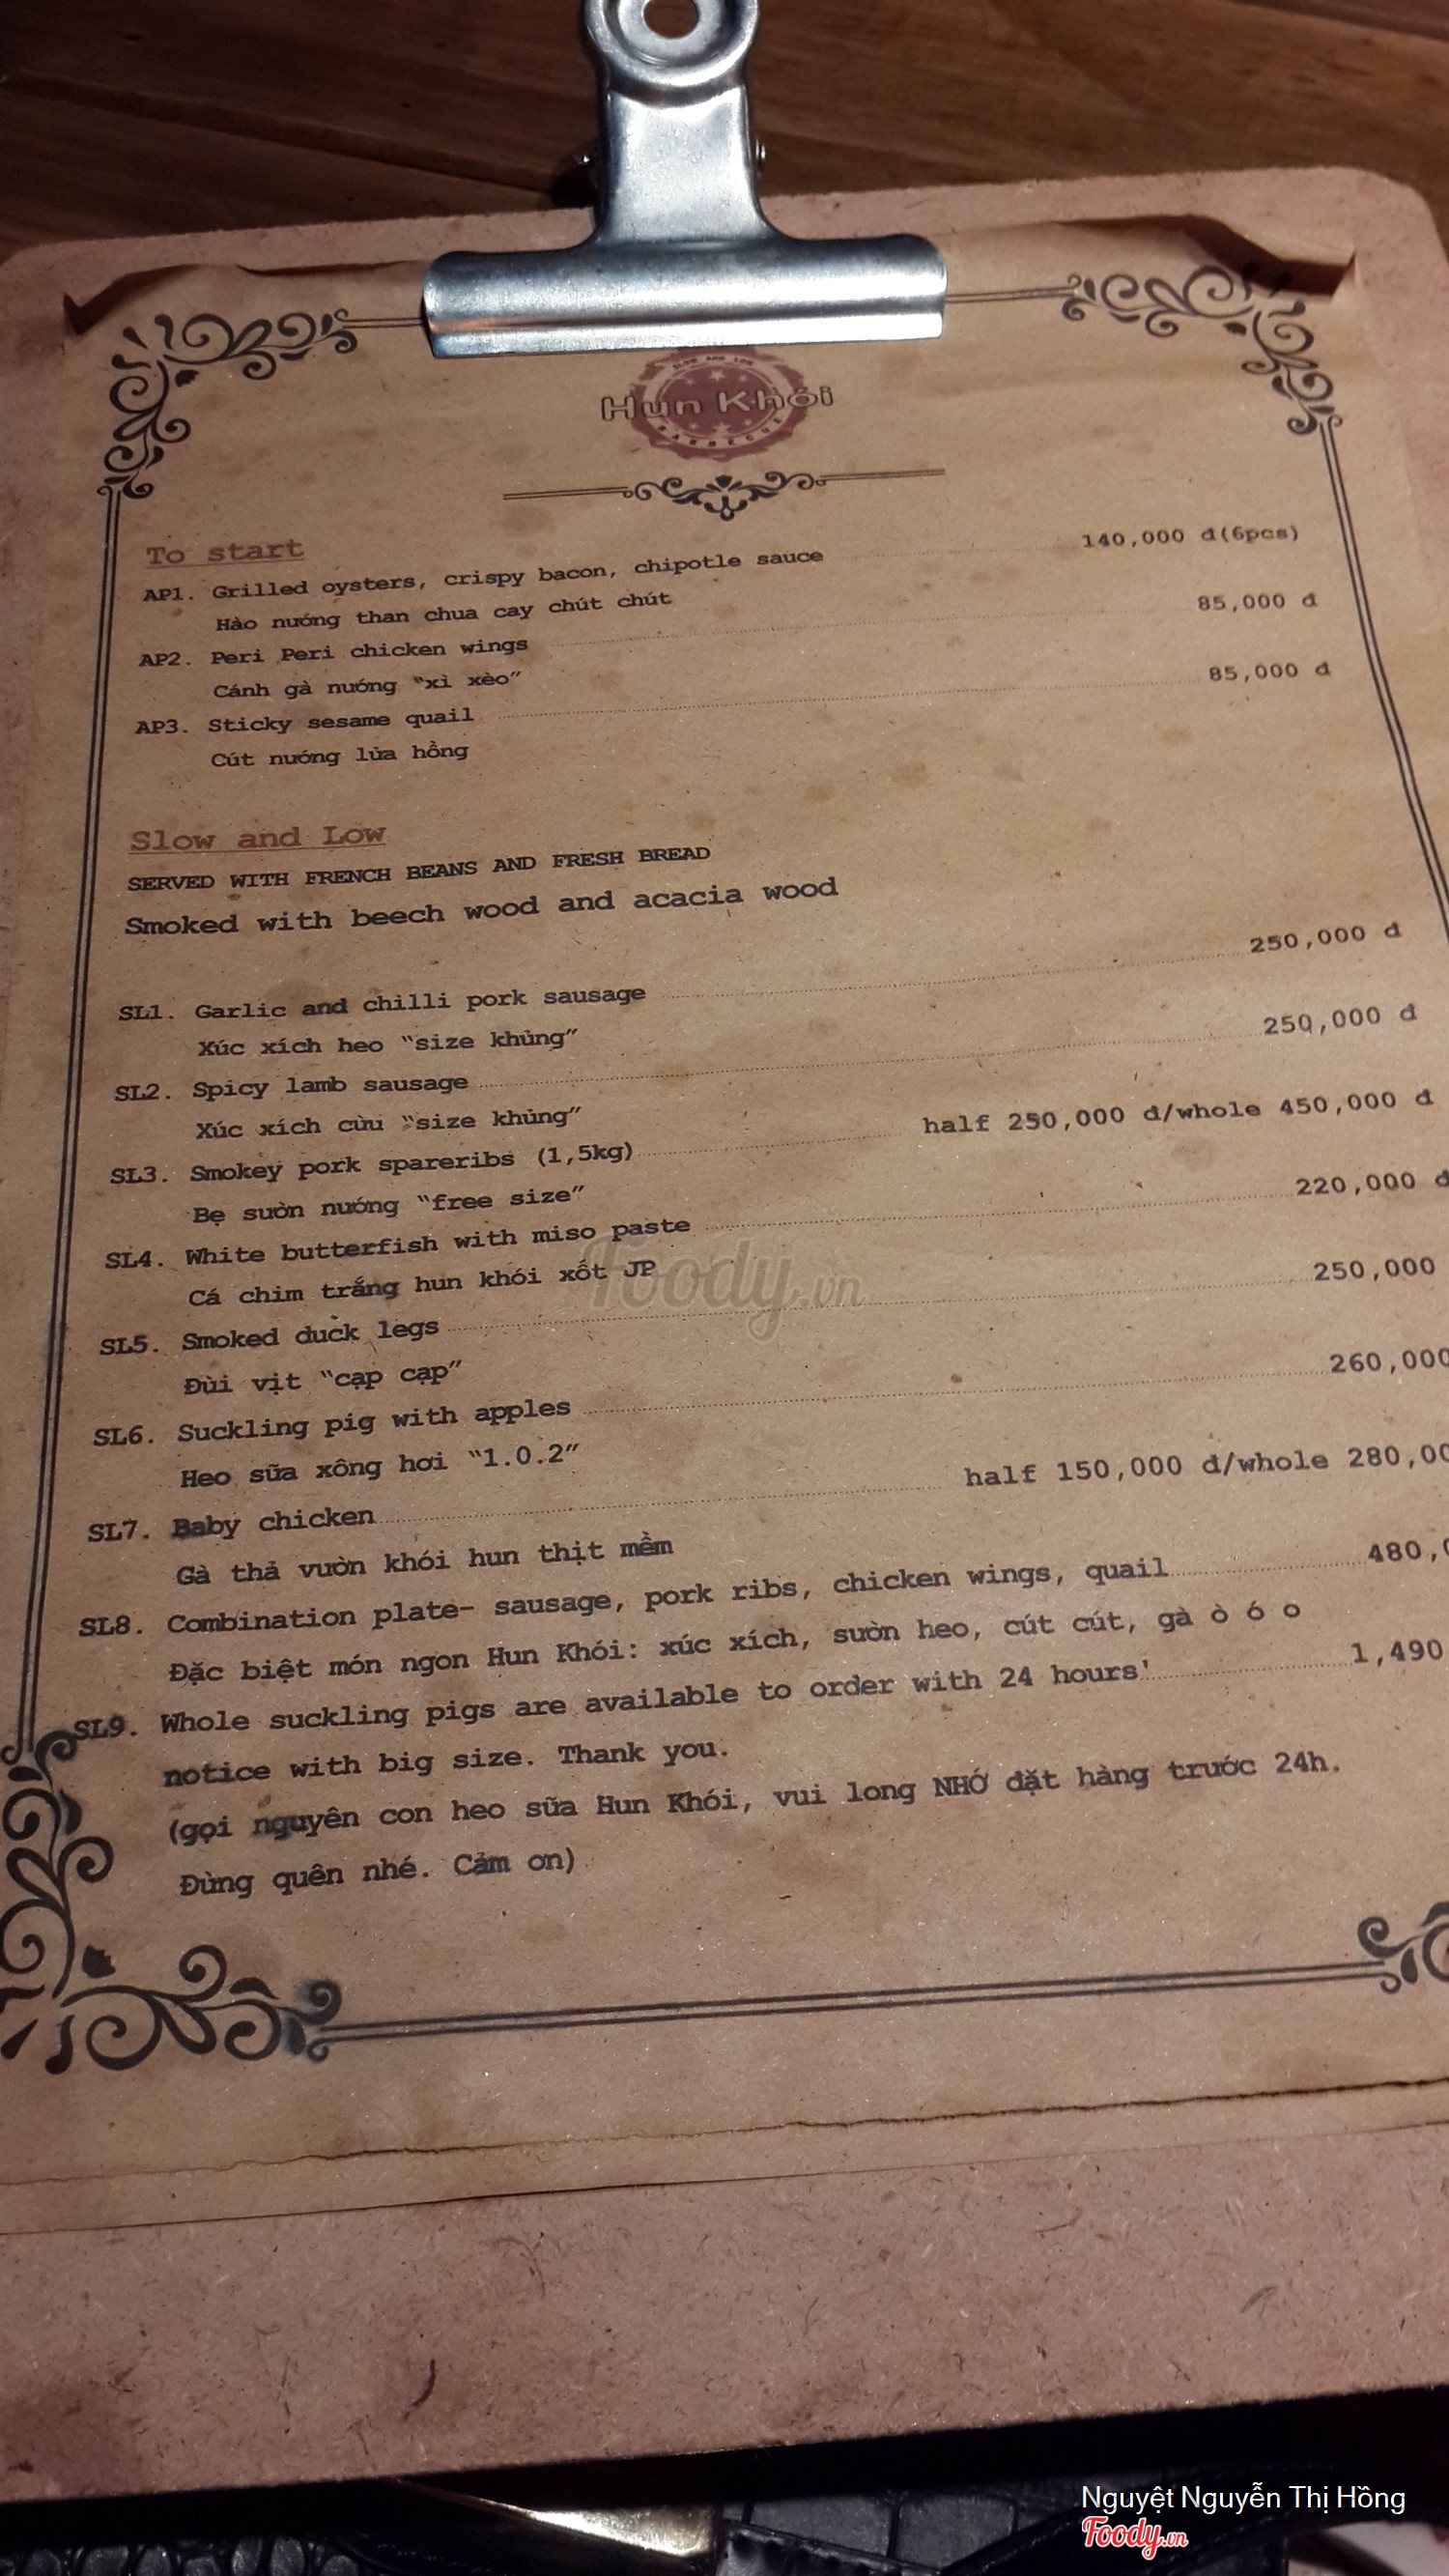 SLOW AND LOW
Hun Khói
BARBECUE
To start
AP1. Grilled oysters, crispy bacon, chipotle sauce 140,000 đ(6pcs)
Hào nướng than chua cay chút chút
AP2. Peri Peri chicken wings 85,000 đ
Cánh gà nướng “xì xèo”
AP3. Sticky sesame quail 85,000 đ
Cút nướng lửa hồng
Slow and Low
SERVED WITH FRENCH BEANS AND FRESH BREAD
Smoked with beech wood and acacia wood
SL1. Garlic and chilli pork sausage 250,000 đ
Xúc xích heo “size khủng”
SL2. Spicy lamb sausage 250,000 đ
Xúc xích cừu “size khủng”
SL3. Smokey pork spareribs (1,5kg) half 250,000 đ/whole 450,000 đ
Bẹ sườn nướng “free size”
SL4. White butterfish with miso paste 220,000 đ
Cá chim trắng hun khói xốt JP
SL5. Smoked duck legs 250,000
Đùi vịt “cạp cạp”
SL6. Suckling pig with apples 260,000
Heo sữa xông hơi “1.0.2”
SL7. Baby chicken half 150,000 đ/whole 280,00
Gà thả vườn khói hun thịt mềm
SL8. Combination plate- sausage, pork ribs, chicken wings, quail 480,
Đặc biệt món ngon Hun Khói: xúc xích, sườn heo, cút cút, gà ò ó o
SL9. Whole suckling pigs are available to order with 24 hours' 1,490
notice with big size. Thank you.
(gọi nguyên con heo sữa Hun Khói, vui long NHỚ đặt hàng trước 24h.
Đừng quên nhé. Cảm ơn)
Foody.vn
Nguyệt Nguyễn Thị Hồng
Foody.vn